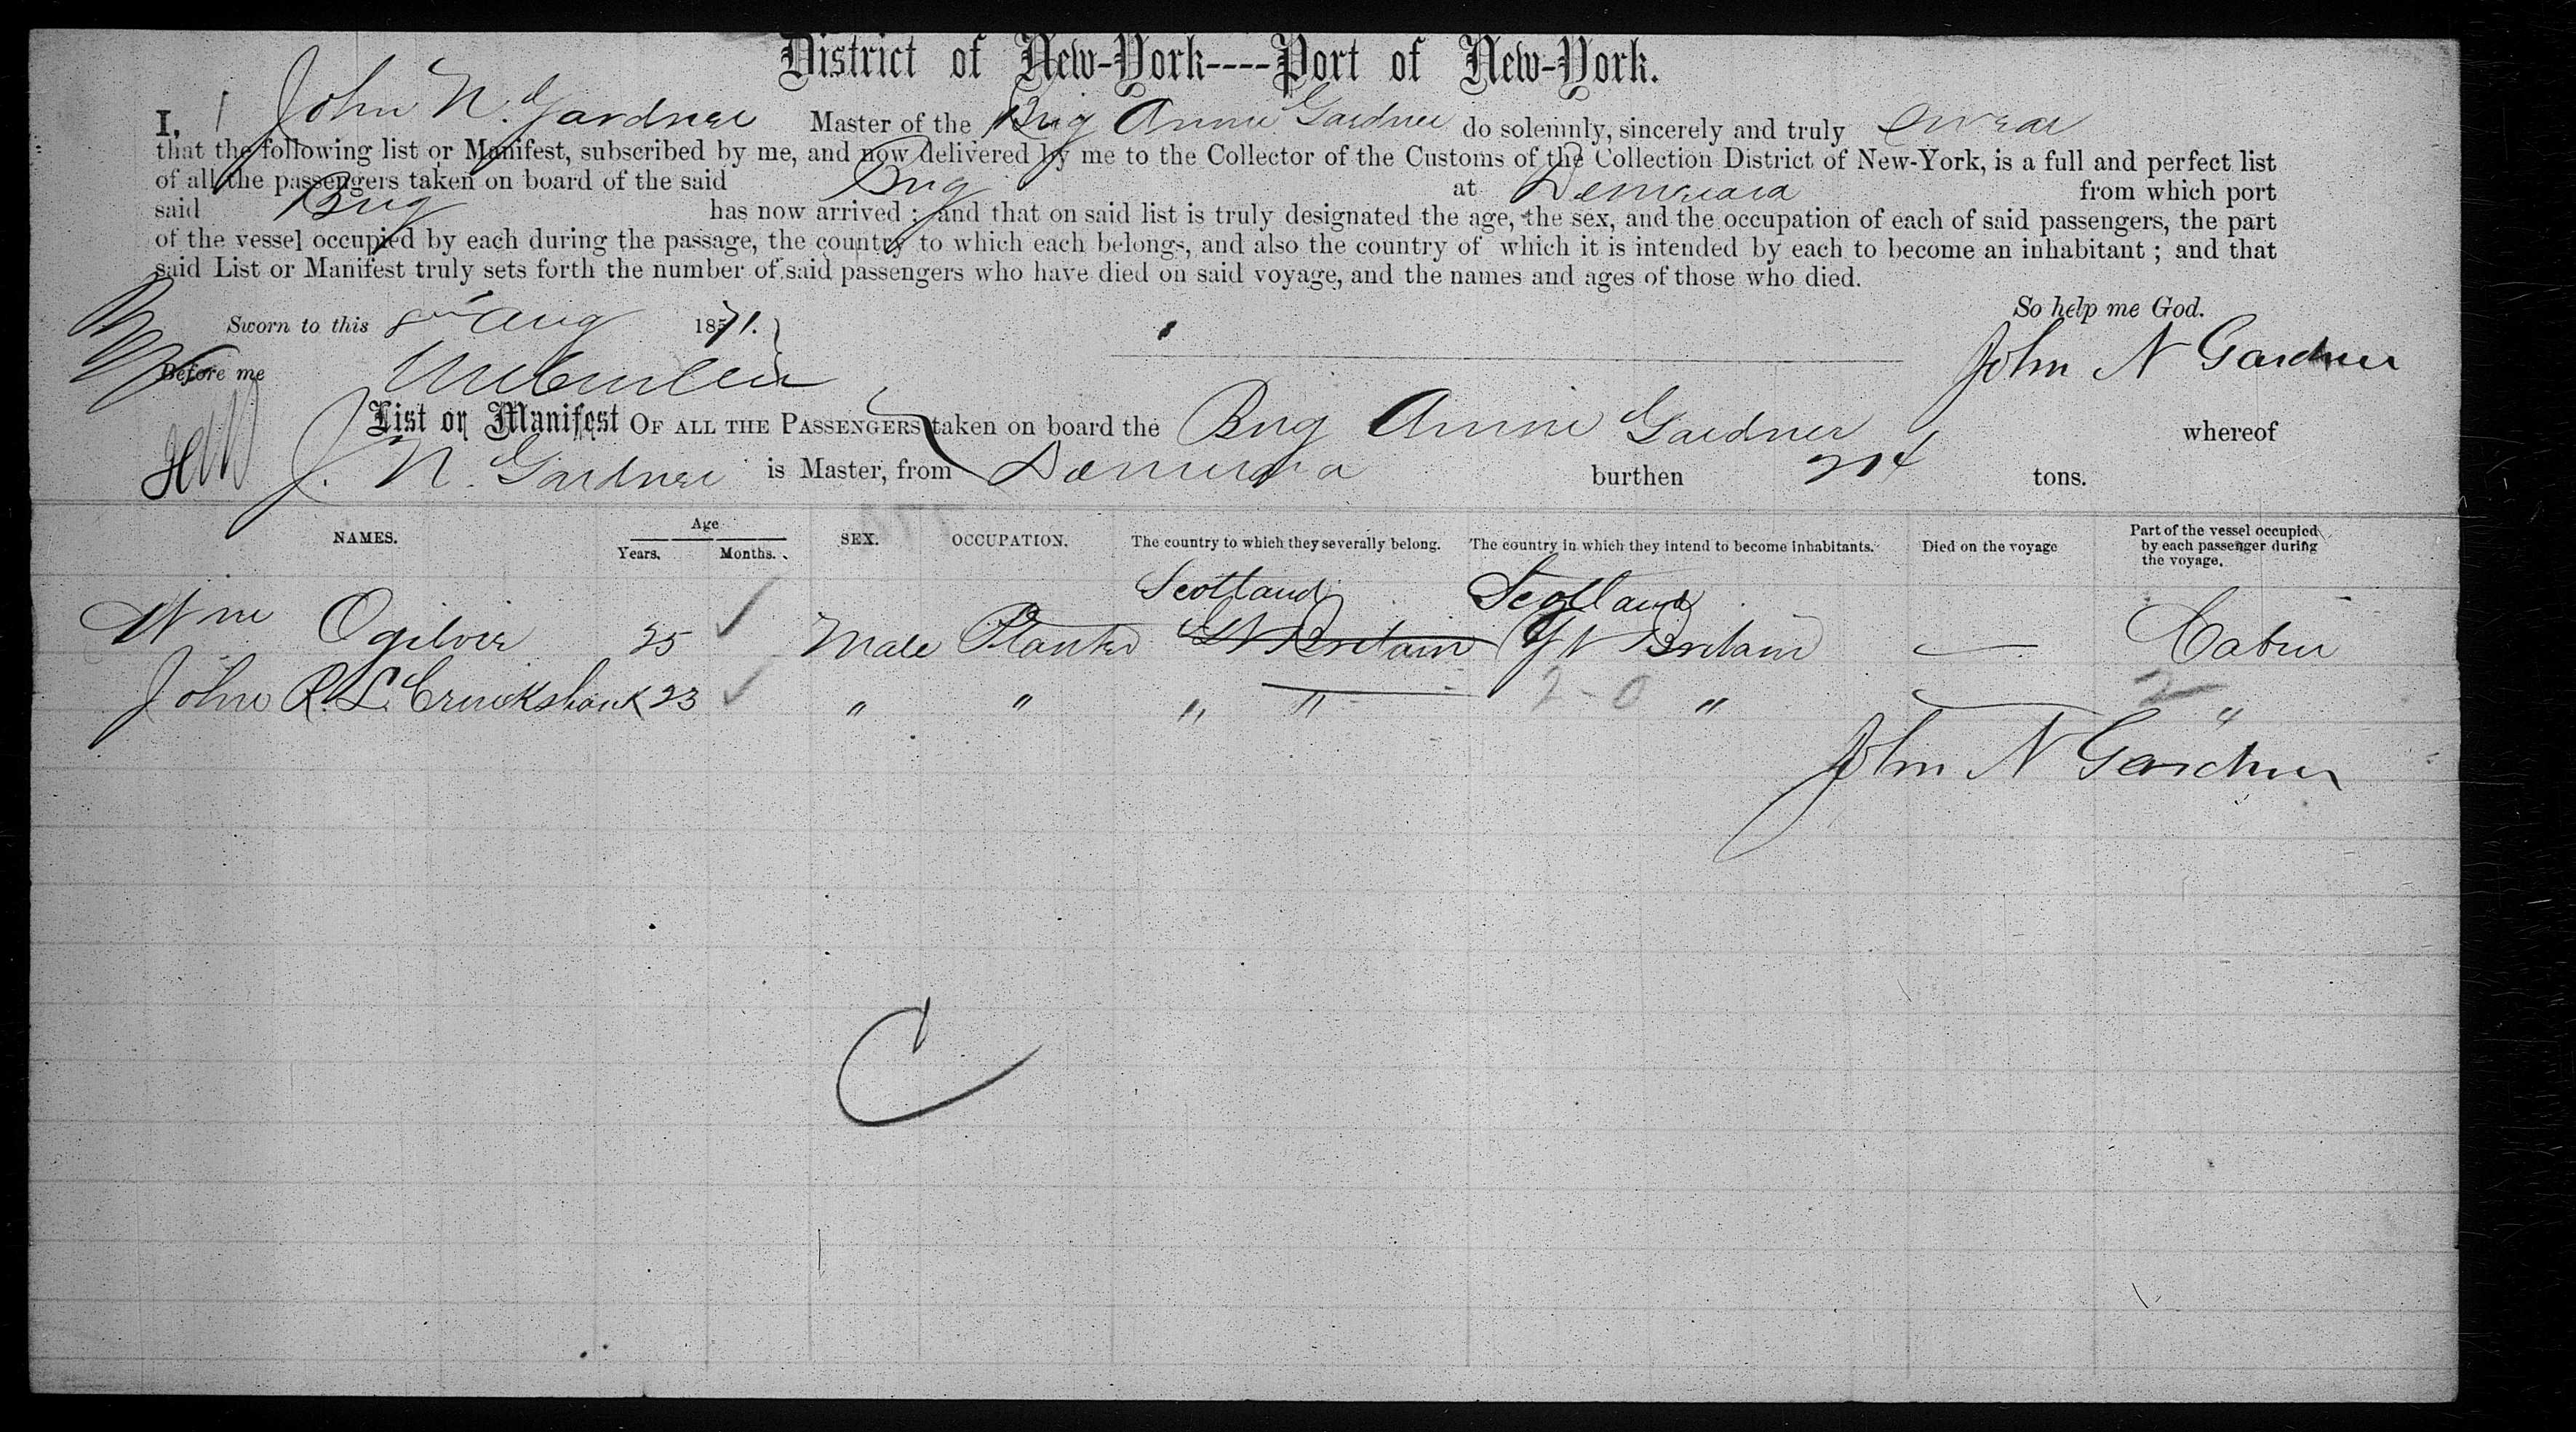 District of New-York----Port of New-York.
I, John N. Gardner Master of the Brig Annie Gardner do solemnly, sincerely and truly swear
that the following list or Manifest, subscribed by me, and now delivered by me to the Collector of the Customs of the Collection District of New-York, is a full and perfect list
of all the passengers taken on board of the said Brig at Demerara from which port
said Brig has now arrived ; and that on said list is truly designated the age, the sex, and the occupation of each of said passengers, the part
of the vessel occupied by each during the passage, the country to which each belongs, and also the country of which it is intended by each to become an inhabitant ; and that
said List or Manifest truly sets forth the number of said passengers who have died on said voyage, and the names and ages of those who died.
So help me God.
Sworn to this 8th Aug 1871.
John N Gardner
Before me
List or Manifest OF ALL THE PASSENGERS taken on board the Brig Annie Gardner whereof
J. N. Gardner is Master, from Demerara burthen 214 tons.
NAMES. Age Years. Months. SEX. OCCUPATION. The country to which they severally belong. The country in which they intend to become inhabitants. Died on the voyage Part of the vessel occupied by each passenger during the voyage.
Scotland Scotland
Wm Ogilvie 25 Male Planter Gt Britain Gt Britain — Cabin
John R. L. Cruickshank 23 " " " " " "
2-0 2
John N Gardner
C